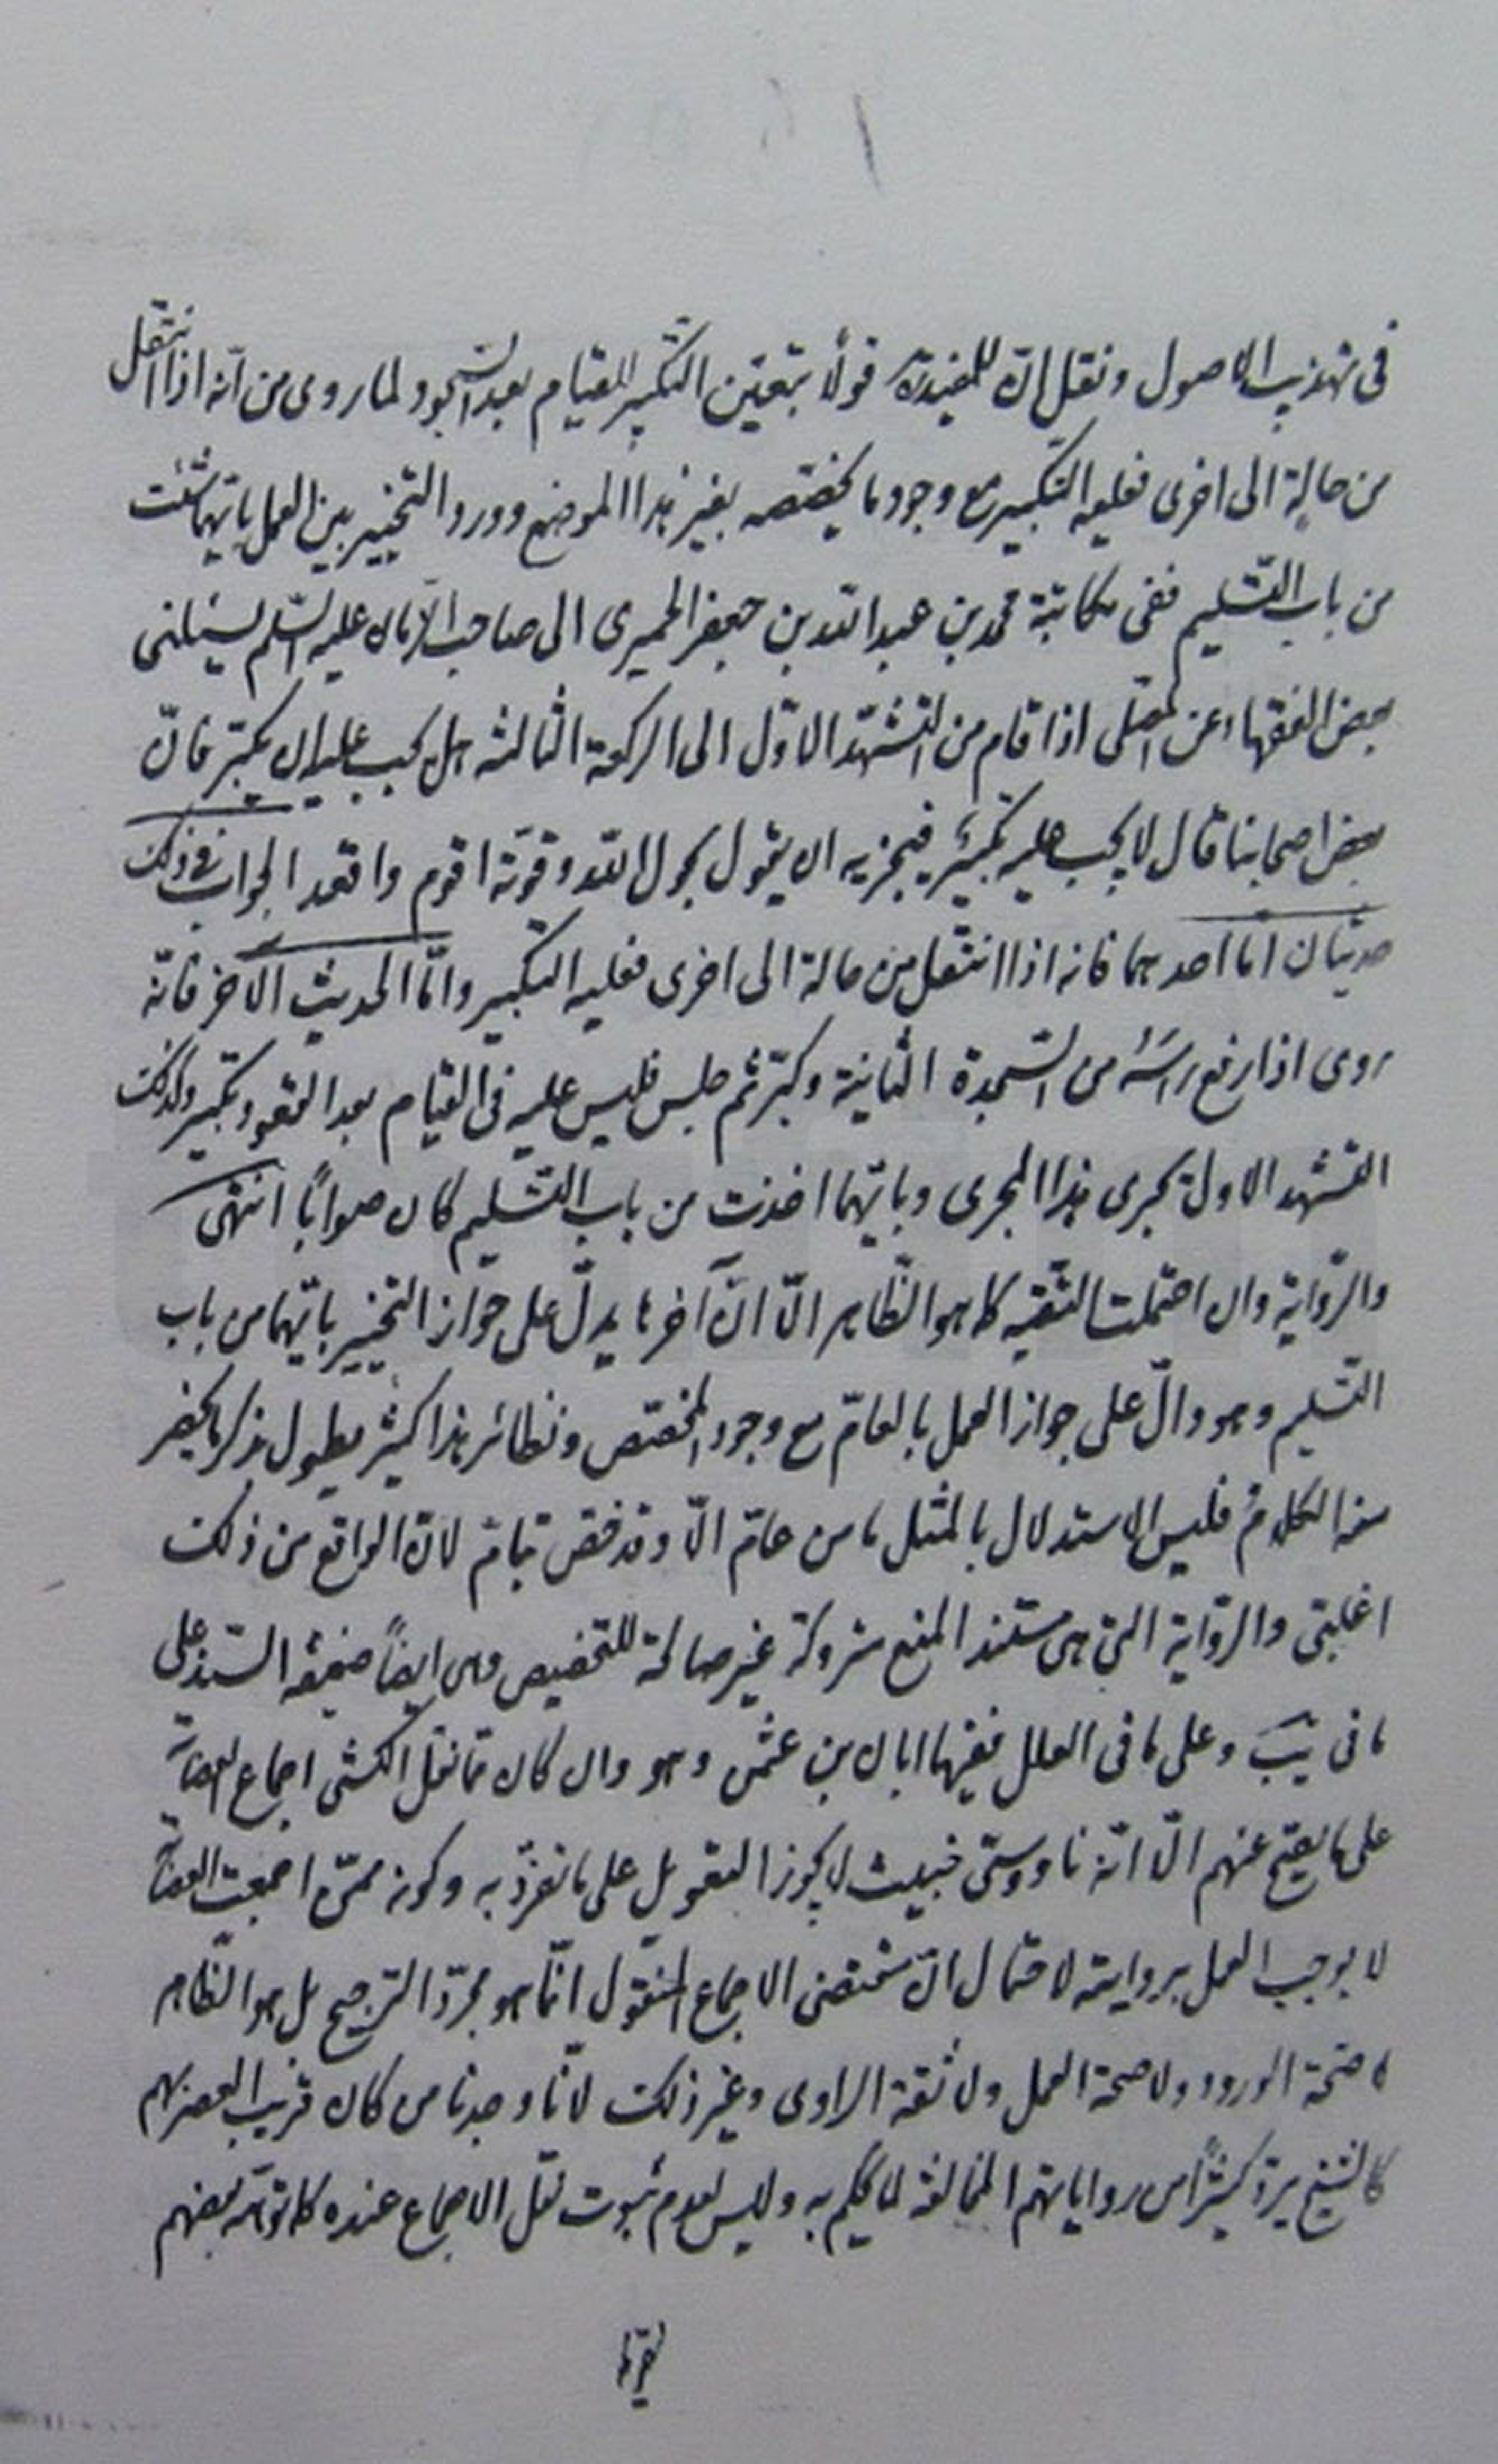 في تهذيب الاصول ونقل انّ للمفيد ره قولًا بتعيّن التكبير للقيام بعد السّجود لما روى من انّه اذا انتقل
من حالة الى اخرى فعليه التكبير مع وجود ما يخصّصه بغير هذا الموضع وورد التخيير بين العمل بايّهما شئت
من باب التّسليم ففى مكاتبة محمد بن عبد الله بن جعفر الحميرى الى صاحب الزّمان عليه السّلم يسئلنى
بعض الفقهاء عن المصلّى اذا قام من التشهّد الاوّل الى الركعة الثالثة هل يجب عليه ان يكبّر فانّ
بعض اصحابنا قال لا يجب عليه تكبير فيجزيه ان يقول بحول الله وقوّته اقوم واقعد الجواب في ذلك
حديثان امّا احدهما فانه اذا انتقل من حالة الى اخرى فعليه التكبير وامّا الحديث الآخر فانّه
روى اذا رفع راسه من السّجدة الثانية وكبّر ثم جلس فليس عليه فى القيام بعد القعود تكبير وكذلك
التشهد الاول يجرى هذا المجرى وبايّهما اخذت من باب التّسليم كان صوابًا انتهى
والرّواية وان احتملت التّقيه كما هو الظّاهر الّا انّ آخرها يدلّ على جواز التخيير بايّهما من باب
التّسليم وهو دالّ على جواز العمل بالعامّ مع وجود المخصّص ونظائر هذا كثير يطول بذكر ما يحضر
منه الكلام فليس الاستدلال بالمثل ما من عامّ الّا وقد خصّ بتامّ لانّ الواقع من ذلك
اغلبىّ والرّواية التى هى مستند المنع متروكة غير صالحة للتخصيص وهى ايضاً ضعيفه السّند على
ما فى يب وعلى ما فى العلل ففيها ابان بن عثمن وهو وان كان ممّا نقل الكشى اجماع العصابة
على ما يصحّ عنهم الّا انّه ناووسىّ خبيث لا يجوز التعويل على ما تفرّد به وكونه ممّن اجمعت العصابة
لا يوجب العمل بروايته لاحتمال انّ مقتضى الاجماع المنقول انّما هو مجرّد الترجيح بل هو الظّاهر
لا صحّة الورود ولا صحة العمل ولا ثقة الراوى وغير ذلك لانّا وجدنا من كان قريب العصر بهم
كالشيخ يردّ كثيرًا من رواياتهم المخالفة لما يحكم به وليس لعدم ثبوت نقل الاجماع عنده كما توهّمه بعضهم